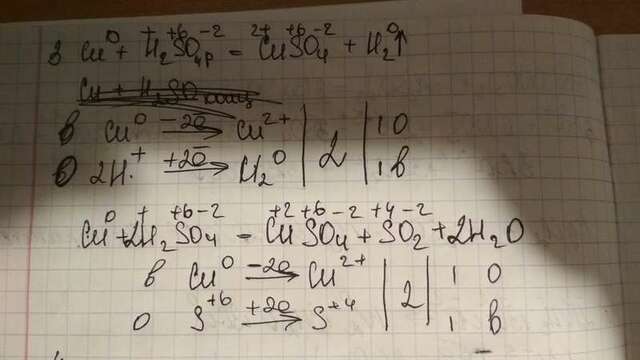 3 Cu⁰ + H₂⁺S⁺⁶O₄⁻²р = Cu²⁺S⁺⁶O₄⁻² + H₂⁰↑
Cu + H₂SO₄ конц
в Cu⁰ −2ē → Cu²⁺ | 2 | 1 О
о 2H⁺ +2ē → H₂⁰ | 1 в
Cu⁰ + 2H₂⁺S⁺⁶O₄⁻² = Cu⁺²S⁺⁶O₄⁻² + S⁺⁴O₂⁻² + 2H₂O
в Cu⁰ −2ē → Cu²⁺ | 2 | 1 О
О S⁺⁶ +2ē → S⁺⁴ | 1 в